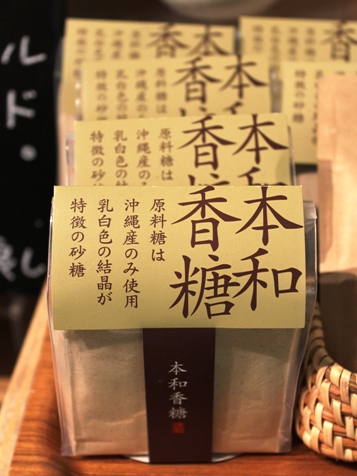 本和
香糖
原料糖は
沖縄産のみ使用
乳白色の結晶が
特徴の砂糖
本和香糖
本和
香糖
原料糖は
沖縄産のみ使用
乳白色の
特徴の砂
本和
香糖
原料糖は
沖縄産の
乳白色
特徴の
本
香
ルド・